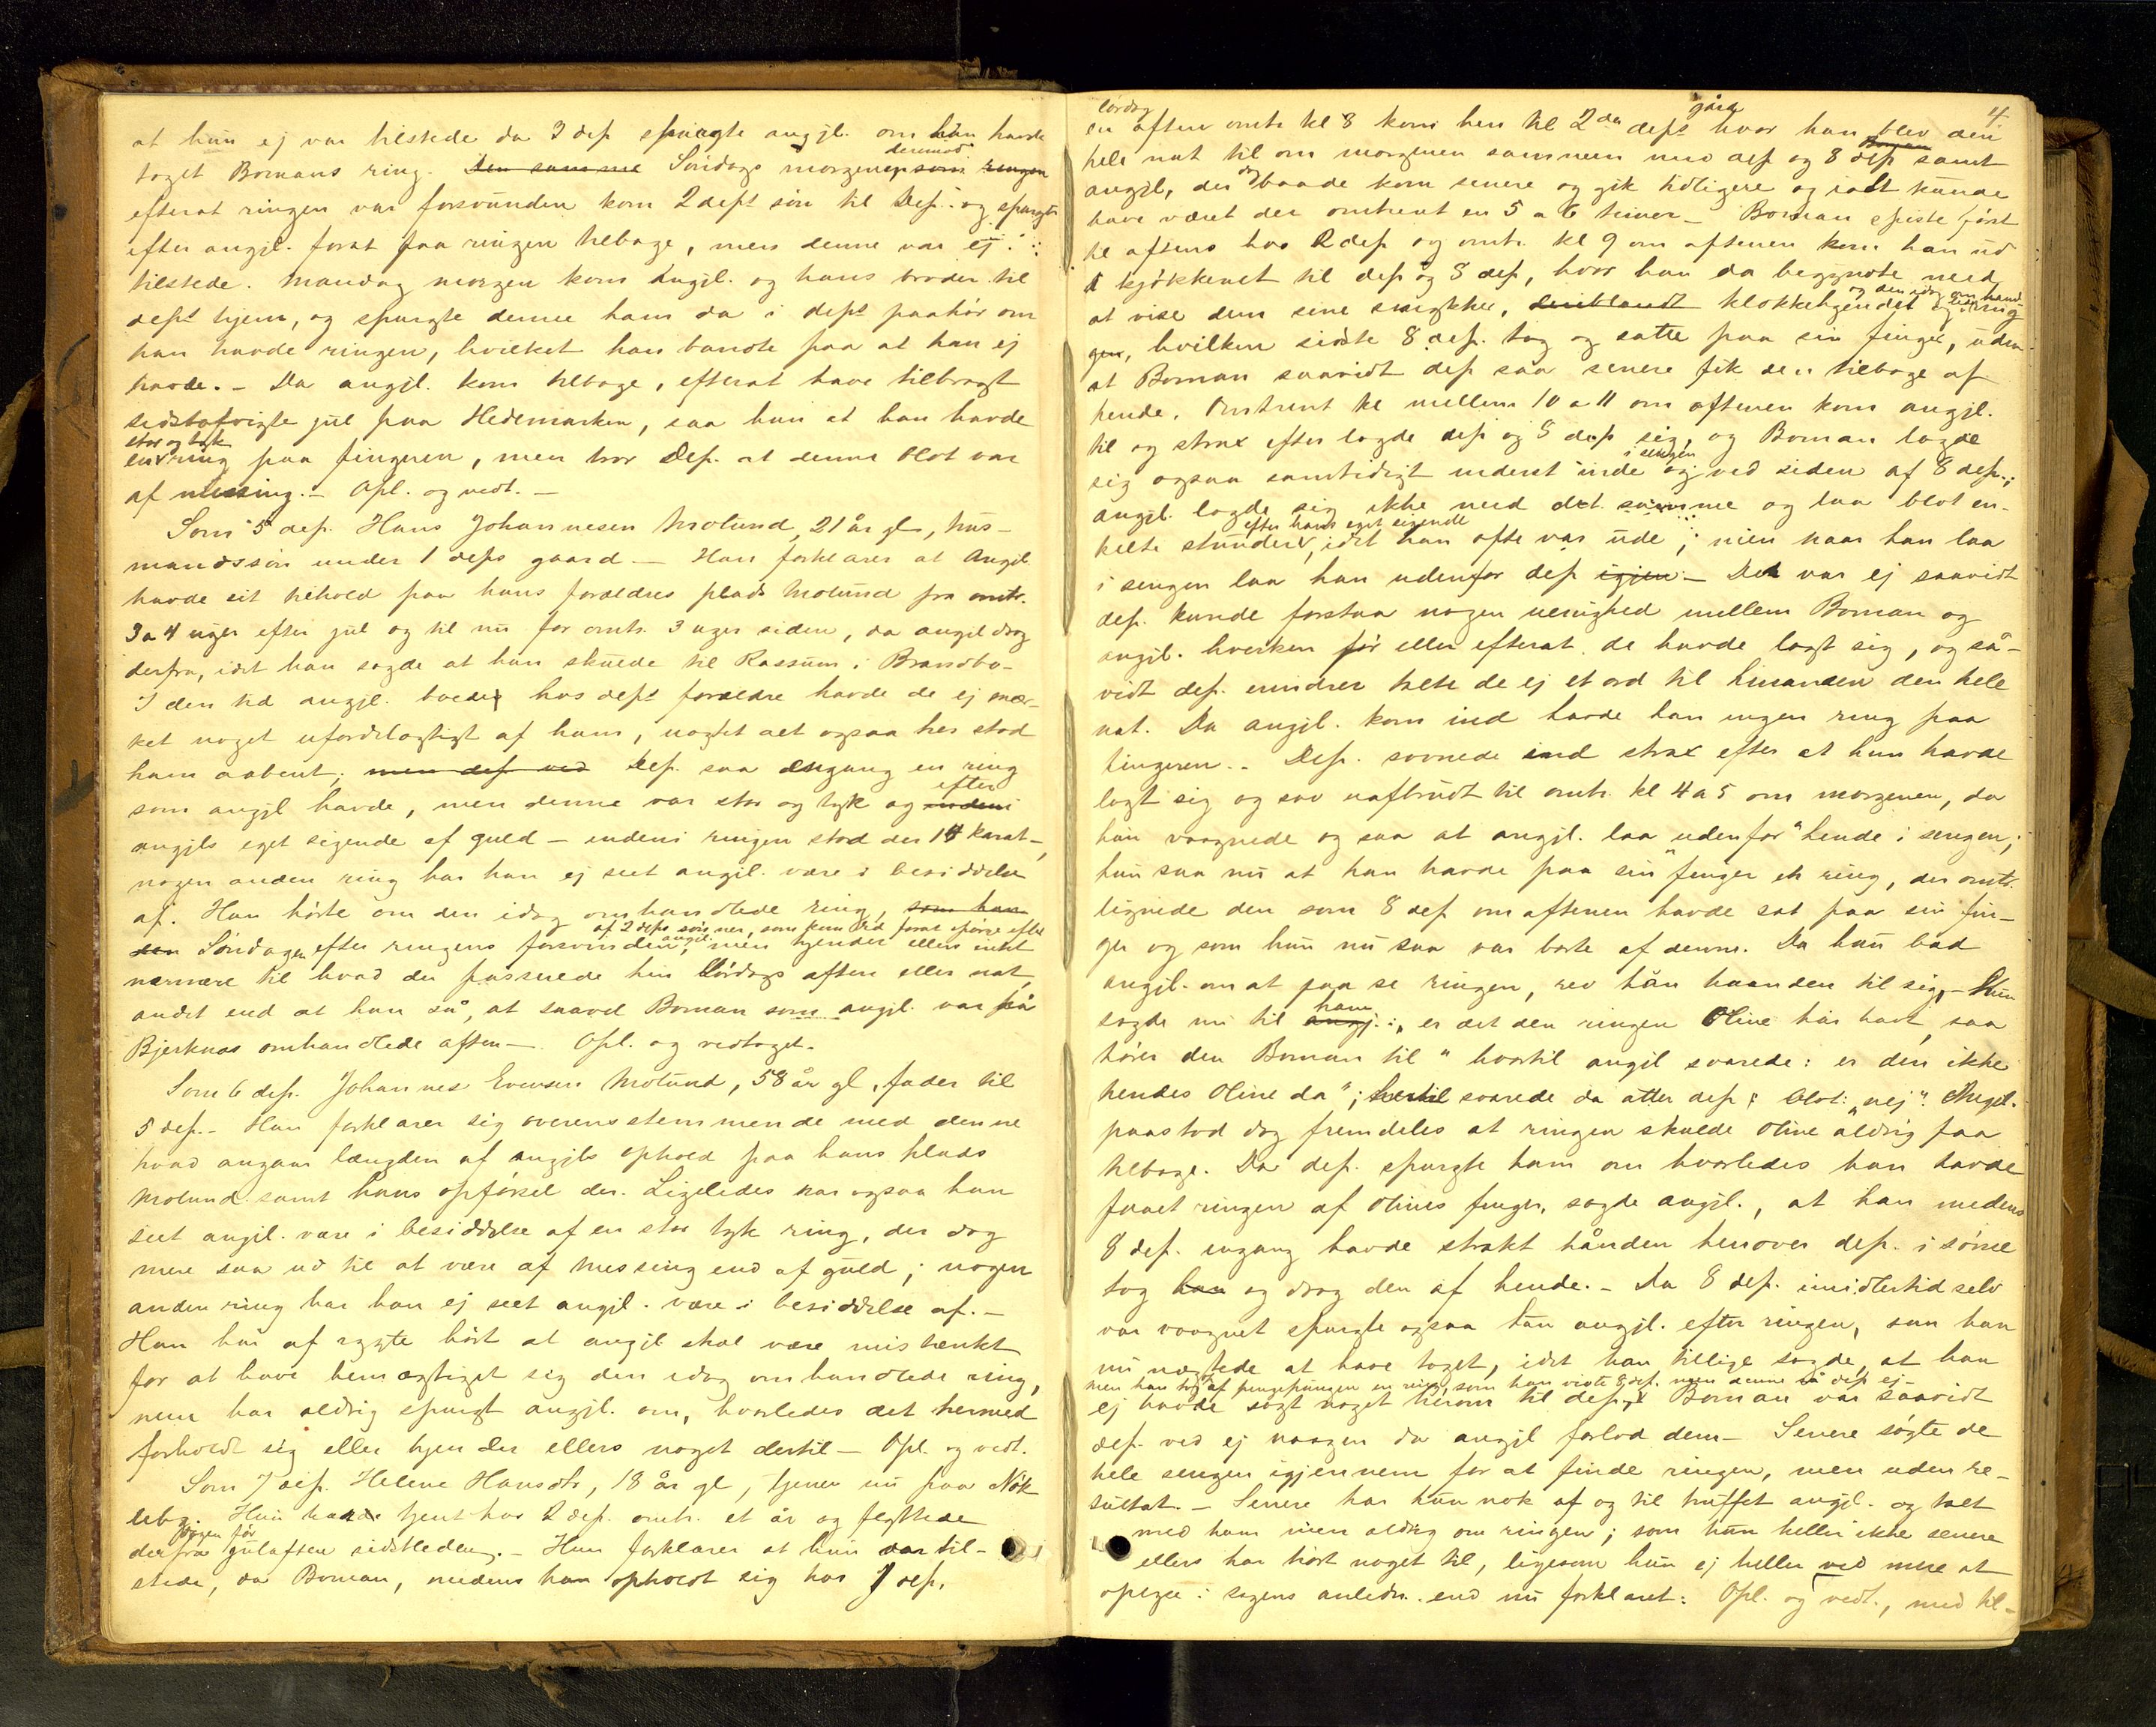 at hun ej var tilstede da 3 dep spurgte angjl. om han havde
taget Bomans ring. Den samme Søndags morgenen som ringen
derimod
efterat ringen var forsvunden kom 2 deps søn til Dep. og spurgte
efter angjl. forat faa ringen tilbage, men denne var ej
tilstede. Mandag morgen kom angjl. og hans broder til
deps hjem, og spurgte denne ham da i deps paahør om
han havde ringen, hvilket han bandte paa at han ej
havde. - Da angjl. kom tilbage, efterat have tilbragt
sidstafvigte jul paa Hedemarken, saa hun at han havde
stor og tyk
en ring paa fingeren, men tror Dep. at denne blot var
af messing. - Opl. og vedt. -
Som 5 dep. Hans Johannesen Molund, 21 år gl, hus-
mandssøn under 1 deps gaard. - Han forklarer at Angjl.
havde sit tilhold paa hans forældres plads Molund fra omtr.
3 a 4 uger efter jul og til nu for omtr. 3 uger siden, da angjl drog
derfra, idet han sagde at han skulde til Rassum i Brandbu -
I den tid angjl. boede hos deps forældre havde de ej mær-
ket noget ufordelagtigt af ham, uagtet alt ogsaa her stod
ham aabent; men dep ved Dep. saa engang en ring
som angjl havde, men denne var stor og tyk og indeni
efter
angjls eget sigende af guld - indeni ringen stod der 14 karat -,
nogen anden ring har han ej seet angjl. være i besiddelse
af. Han hørte om den idag omhandlede ring, som han
af 2 deps sønner, som kom did forat spørge efter
angjl.
den Søndagen efter ringens forsvinden, men kjender ellers intet
nærmere til hvad der passerede hin Lørdags aften eller nat,
andet end at han så, at saavel Boman som angjl. var på
Bjerknæs omhandlede aften -. Opl. og vedtaget.
Som 6 dep. Johannes Evensen Molund, 58 år gl, fader til
5 dep. - Han forklarer sig overensstemmende med denne
hvad angaar længden af angjls ophold paa hans plads
Molund samt hans opførsel der. Ligeledes har ogsaa han
seet angjl. være i besiddelse af en stor tyk ring, der dog
mere saa ud til at være af messing end af guld; nogen
anden ring har han ej seet angjl. være i besiddelse af. -
Han har af rygte hørt at angjl skal være mistænkt
for at have bemægtiget sig den idag omhandlede ring,
men har aldrig spurgt angjl. om, hvorledes det hermed
forholdt sig eller kjender ellers noget dertil - Opl. og vedt.
Som 7 dep. Helene Hansdtr, 18 år gl, tjener nu paa Nøk-
leby. Hun havde tjent hos 2 dep. omtr. et år og flyttede
dagen før
derfra julaften sidstleden. - Hun forklarer at hun var til-
stede, da Boman, medens han opholdt sig hos 1 dep,
4
lørdag
gård
en aften omtr kl 8 kom hen til 2den deps hvor han blev den
Boman
hele nat til om morgenen sammen med dep og 8 dep samt
angjl, der dog baade kom senere og gik tidligere og ialt kunde
have været der omtrent en 5 a 6 timer - Boman spiste først
til aftens hos 2 dep og omtr. kl 9 om aftenen kom han ud
i kjøkkenet til dep og 8 dep, hvor han da begyndte med
og den idag omhand-
at vise dem sine smykker, deriblandt klokkekjendet og ring
gen, hvilken sidste 8 dep. tog og satte paa sin finger, uden
at Boman saavidt dep saa senere fik den tilbage af
hende. Omtrent kl mellem 10 a 11 om aftenen kom angjl.
til og strax efter lagde dep og 8 dep sig, og Boman lagde
i sengen
sig ogsaa samtidigt inderst inde og ved siden af 8 dep.;
angjl. lagde sig ikke med det samme og laa blot en-
efter hans eget sigende
kelte stunder, idet han ofte var ude; men naar han laa
i sengen laa han udenfor dep igjen - Det var ej saavidt
dep. kunde forstaa nogen uenighed mellem Boman og
angjl. hverken før eller efterat de havde lagt sig, og så-
vidt dep. erindrer talte de ej et ord til hinanden den hele
nat. Da angjl. kom ind havde han ingen ring paa
fingeren. - Dep. sovnede ind strax efter at hun havde
lagt sig og sov uafbrudt til omtr. kl 4 a 5 om morgenen, da
hun vaagnede og saa at angjl. laa udenfor hende i sengen;
hun saa nu at han havde paa sin finger en ring, der omtr.
lignede den som 8 dep om aftenen havde sat paa sin fin-
ger og som hun nu saa var borte af denne. Da hun bad
angjl. om at faa se ringen, rev han haanden til sig, - Hun
ham
sagde nu til angj.: „er det den ringen Oline har havt, saa
hører den Boman til" hvortil angjl svarede: er den ikke
hendes Oline da"; hertil svarede da atter dep: blot: „nej". Angjl.
paastod dog fremdeles at ringen skulde Oline aldrig faa
tilbage. Da dep. spurgte ham om hvorledes han havde
faaet ringen af Olines finger, sagde angjl., at han medens
8 dep. engang havde strakt hånden henover dep. i søvne
tog han og drog den af hende. - Da 8 dep. imidlertid selv
var vaagnet spurgte ogsaa hun angjl. efter ringen, som han
nu nægtede at have taget, idet han tillige sagde, at han
men han tog af pengepungen en ring, som han viste 8 dep. men denne så dep ej -
ej havde sagt noget herom til dep. Boman var saavidt
dep. ved ej vaagen da angjl forlod dem - Senere søgte de
hele sengen igjennem for at finde ringen, men uden re-
sultat. - Senere har hun nok af og til truffet angjl. og talt
med ham men aldrig om ringen; som hun heller ikke senere
ellers har hørt noget til, ligesom hun ej heller ved mere at
oplyse i sagens anledn. end nu forklaret: Opl. og vedt., med til-